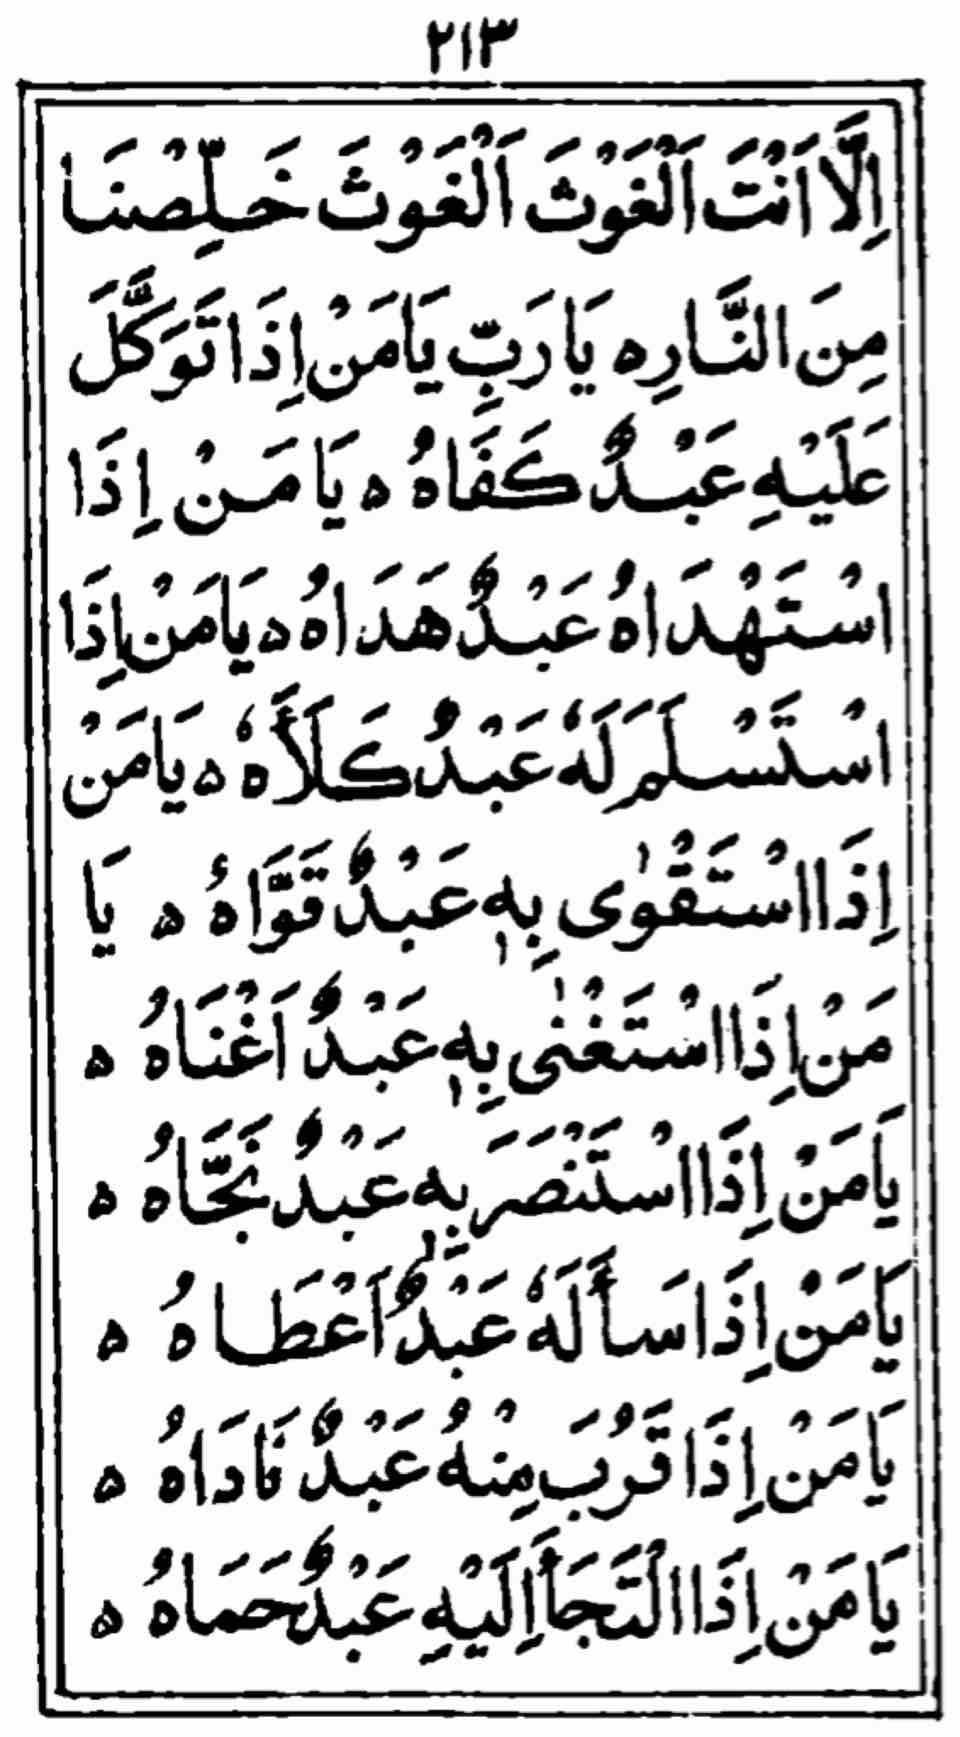 ٢١٣
اِلَّا اَنْتَ اَلْغَوْثَ اَلْغَوْثَ خَلِّصْنَا
مِنَ النَّارِ ه يَا رَبِّ يَا مَنْ اِذَا تَوَكَّلَ
عَلَيْهِ عَبْدٌ كَفَاهُ ه يَا مَنْ اِذَا
اسْتَهْدَاهُ عَبْدٌ هَدَاهُ ه يَا مَنْ اِذَا
اسْتَسْلَمَ لَهٗ عَبْدٌ كَلَأَهٗ ه يَا مَنْ
اِذَا اسْتَقْوٰى بِهٖ عَبْدٌ قَوَّاهُ ه يَا
مَنْ اِذَا اسْتَغْنٰى بِهٖ عَبْدٌ اَغْنَاهُ ه
يَا مَنْ اِذَا اسْتَنْصَرَ بِهٖ عَبْدٌ نَجَّاهُ ه
يَا مَنْ اِذَا سَأَلَهٗ عَبْدٌ اَعْطَاهُ ه
يَا مَنْ اِذَا قَرُبَ مِنْهُ عَبْدٌ نَادَاهُ ه
يَا مَنْ اِذَا الْتَجَأَ اِلَيْهِ عَبْدٌ حَمَاهُ ه